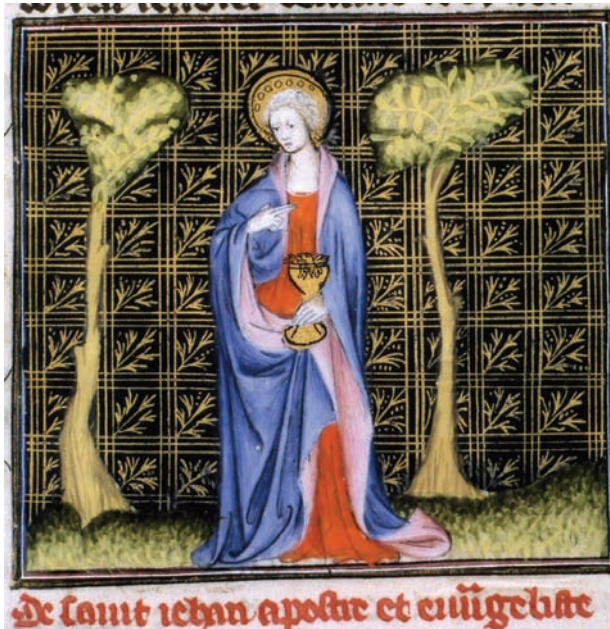 De saint iehan apostre et euũgeliste